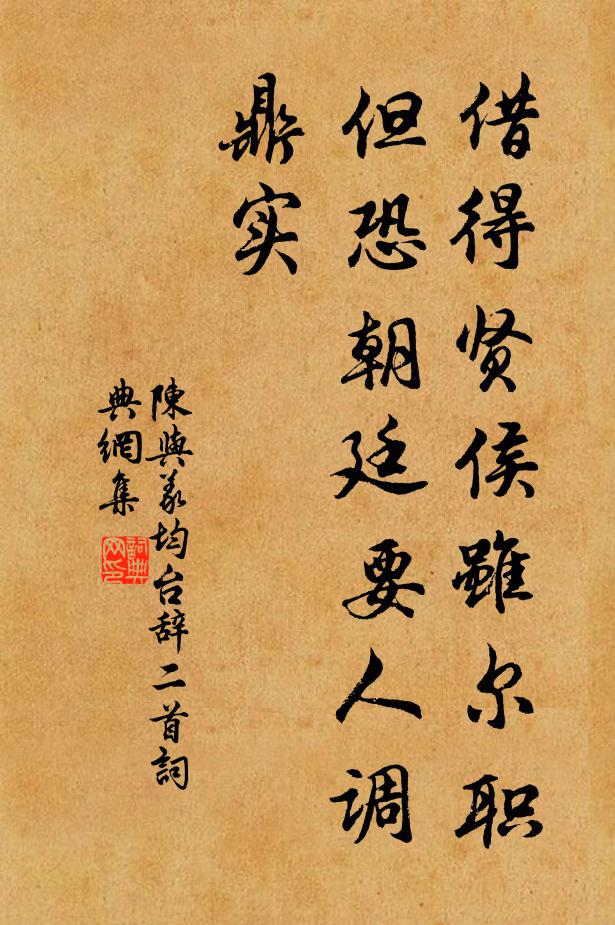 借得贤侯虽尔职
但恐朝廷要人调
鼎实
陳與義均台辞二首詞
典網集
詞典
网印